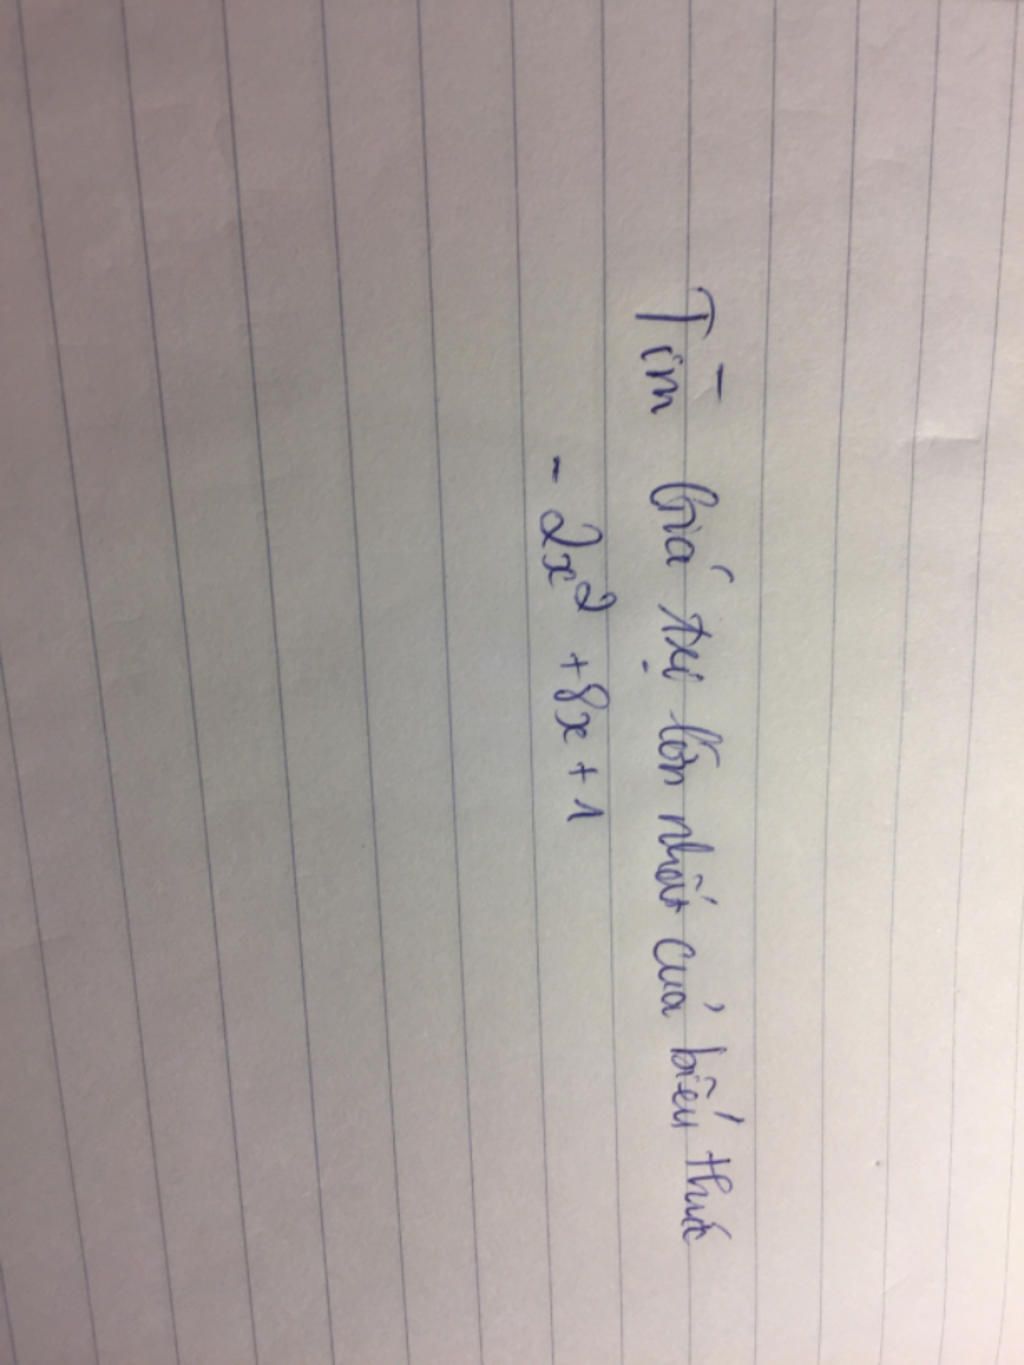 Tìm Giá trị lớn nhất của biểu thức
- 2x² + 8x + 1